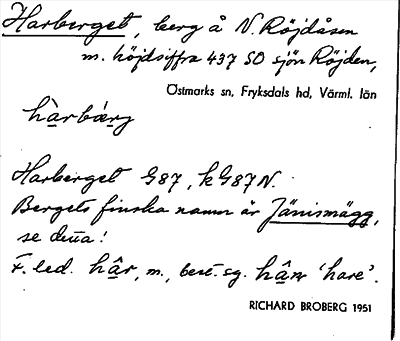 Harberget, berg å N. Röjdåsen
m. höjdsiffra 437 SO sjön Röjden,
Östmarks sn, Fryksdals hd, Värml. län
hàrbærg
Harberget G87, kG87N.
Bergets finska namn är Jänismägg,
se detta!
F. led. hâr, m., best. sg. hân 'hare'.
RICHARD BROBERG 1951